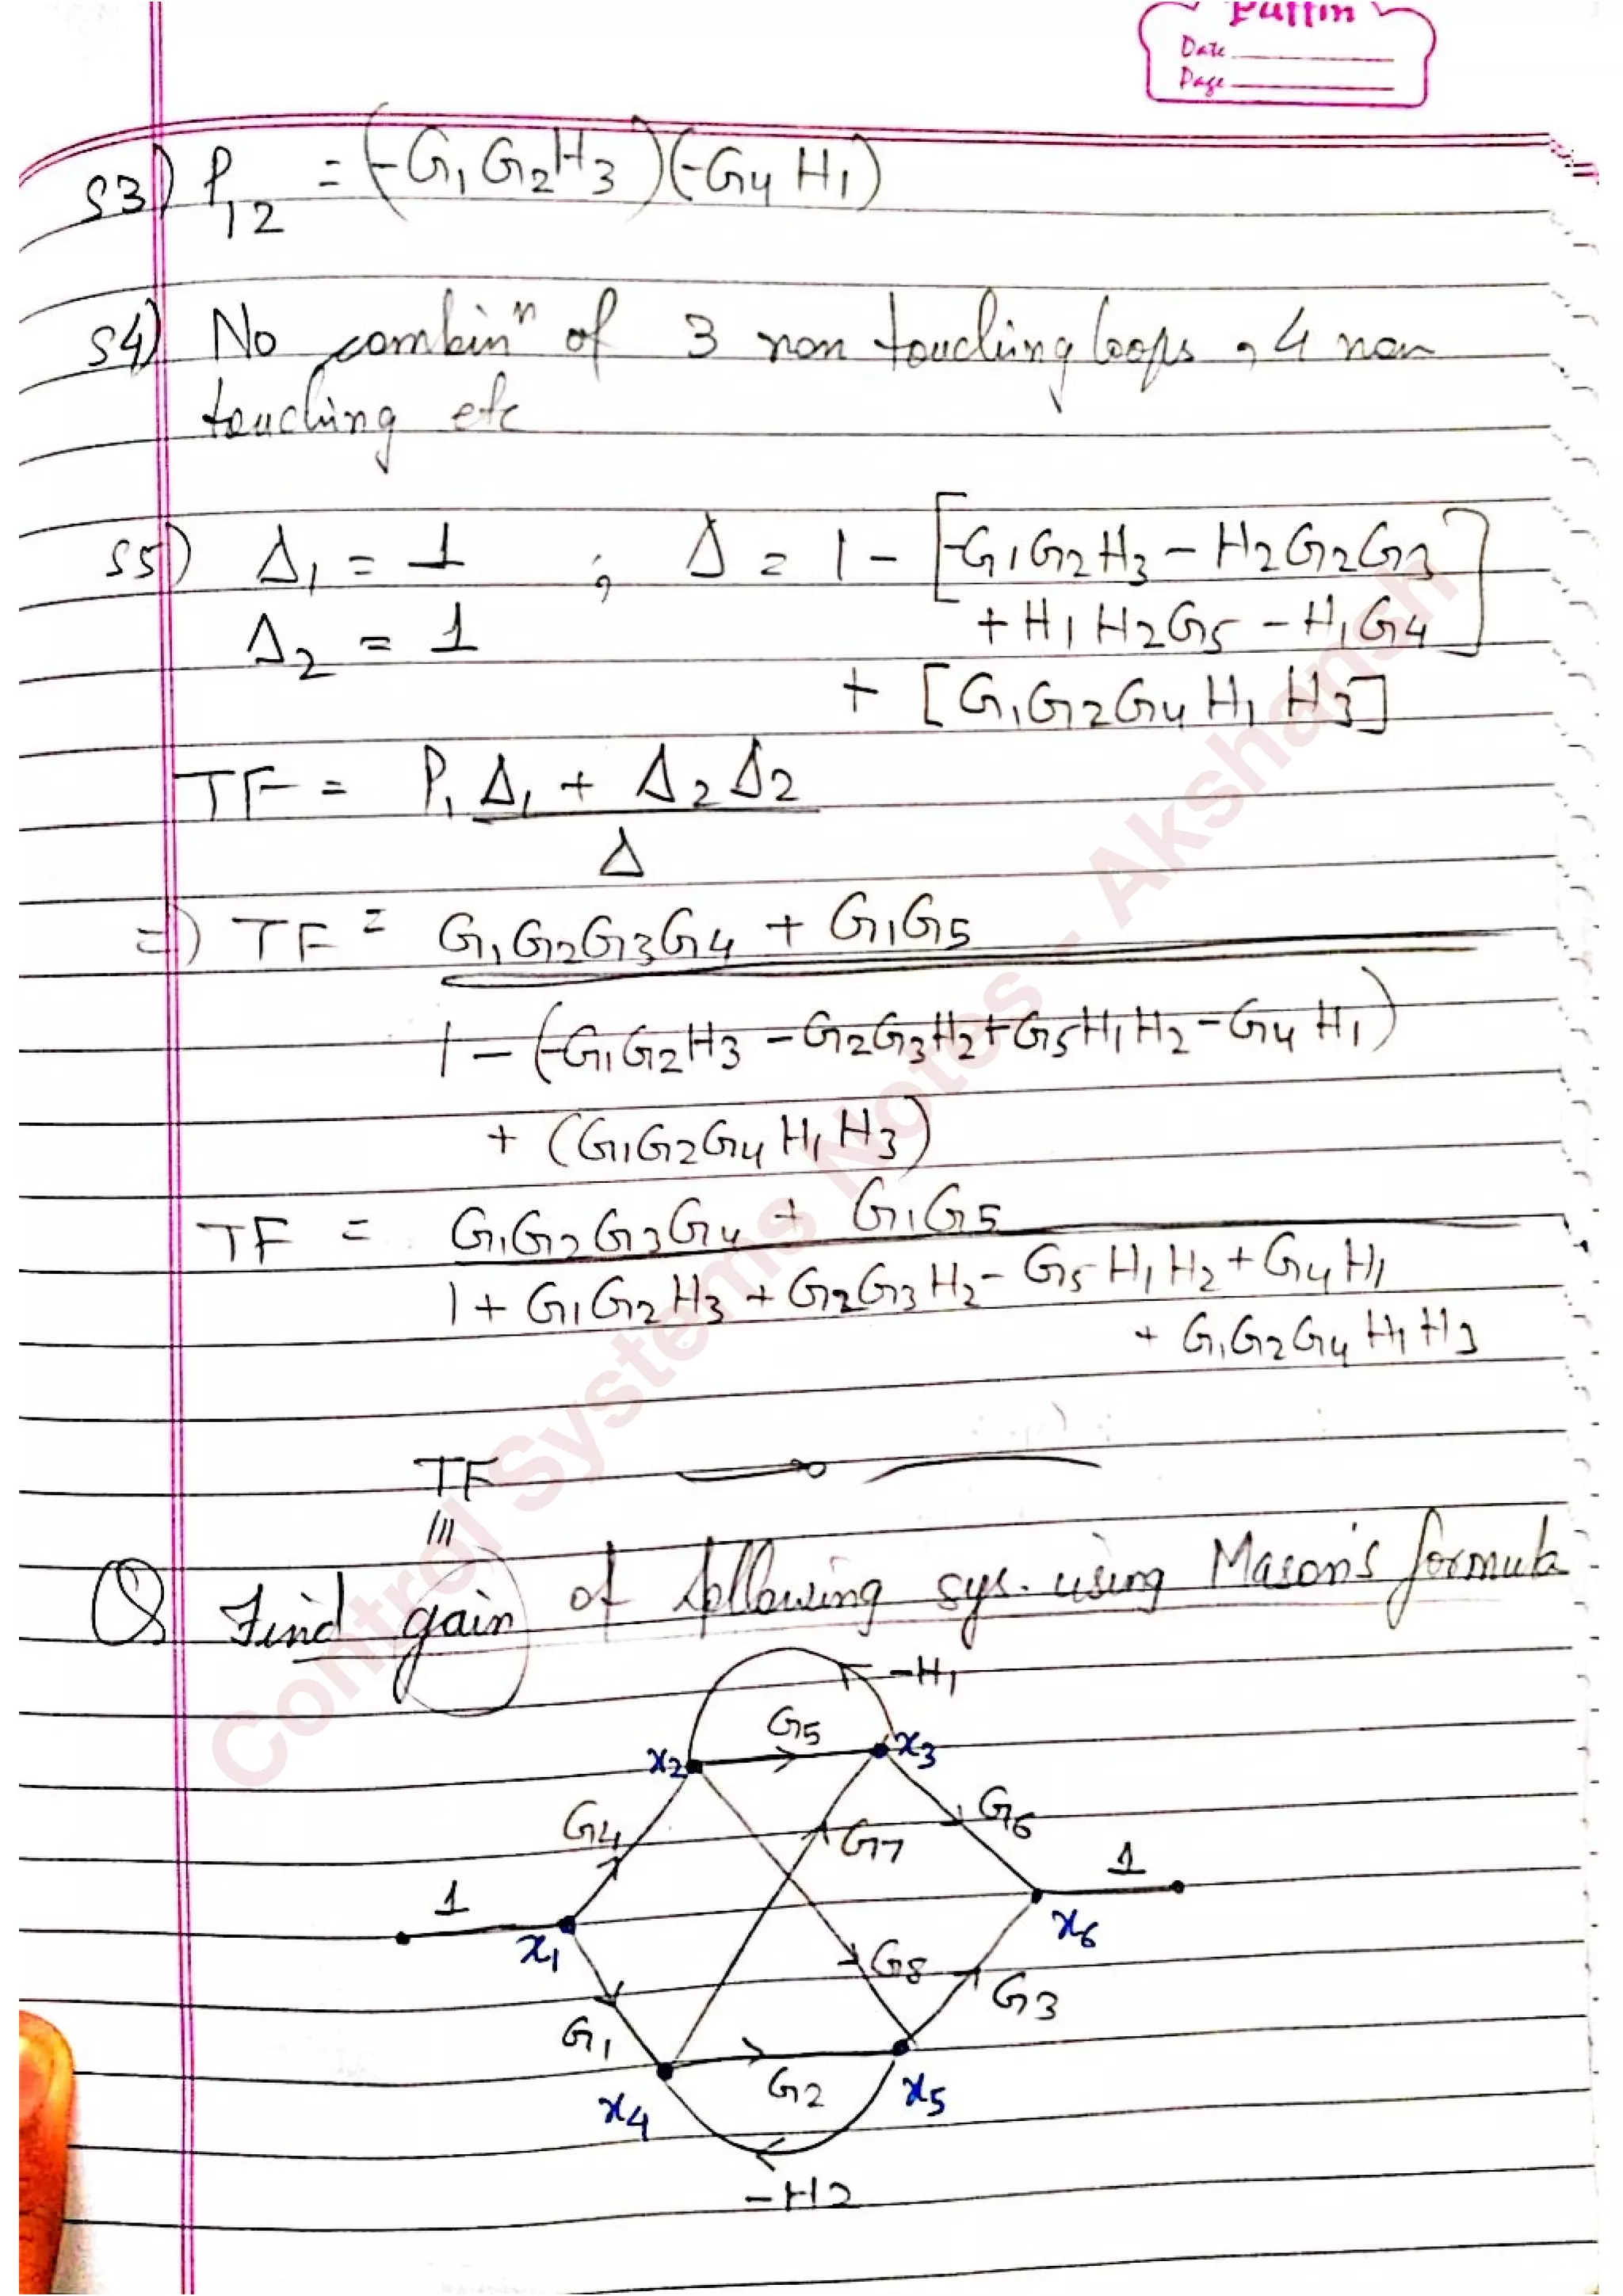 Puffin
Date
Page
S3) P12 = (-G1G2H3)(-G4H1)
S4) No combinⁿ of 3 non touching loops, 4 non
touching etc
S5) Δ1 = 1 ; Δ = 1 - [-G1G2H3 - H2G2G3
Δ2 = 1 + H1H2G5 - H1G4]
+ [G1G2G4H1H3]
TF = P1Δ1 + Δ2Δ2
Δ
=) TF = G1G2G3G4 + G1G5
1 - (-G1G2H3 - G2G3H2 + G5H1H2 - G4H1)
+ (G1G2G4H1H3)
TF = G1G2G3G4 + G1G5
1 + G1G2H3 + G2G3H2 - G5H1H2 + G4H1
+ G1G2G4H1H3
TF
Q Find gain of following sys. using Mason's formula
-H1
G5
x2
x3
G4
G7
G6
1
1
x1
x6
G8
G3
G1
G2
x4
x5
-H2
Control Systems Notes - Akshansh